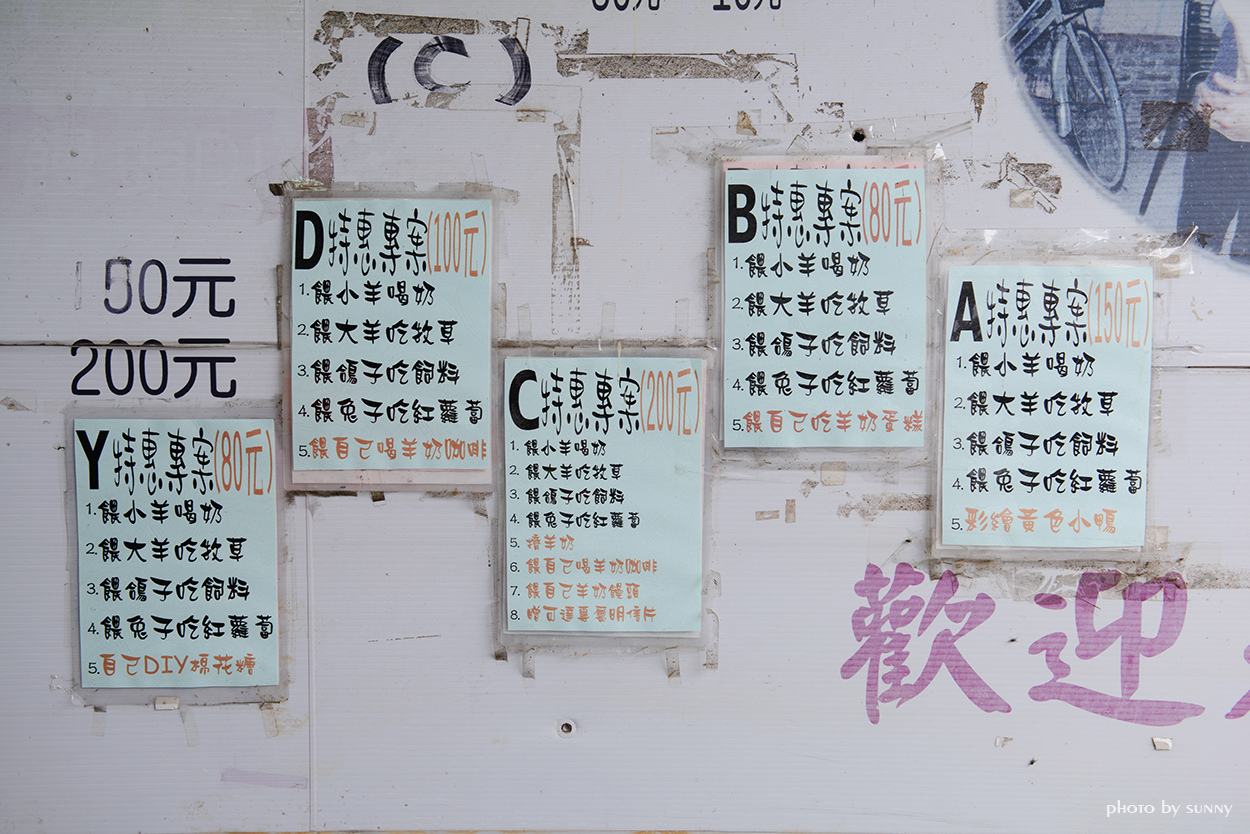 (C)
150元
200元
D特惠專案(100元)
1.餵小羊喝奶
2.餵大羊吃牧草
3.餵鴿子吃飼料
4.餵兔子吃紅蘿蔔
5.餵自己喝羊奶咖啡
B特惠專案(80元)
1.餵小羊喝奶
2.餵大羊吃牧草
3.餵鴿子吃飼料
4.餵兔子吃紅蘿蔔
5.餵自己吃羊奶蛋糕
A特惠專案(150元)
1.餵小羊喝奶
2.餵大羊吃牧草
3.餵鴿子吃飼料
4.餵兔子吃紅蘿蔔
5.彩繪黃色小鴨
C特惠專案(200元)
1.餵小羊喝奶
2.餵大羊吃牧草
3.餵鴿子吃飼料
4.餵兔子吃紅蘿蔔
5.擠羊奶
6.餵自己喝羊奶咖啡
7.餵自己羊奶饅頭
8.明信片
Y特惠專案(80元)
1.餵小羊喝奶
2.餵大羊吃牧草
3.餵鴿子吃飼料
4.餵兔子吃紅蘿蔔
5.自己DIY棉花糖
歡迎
photo by sunny